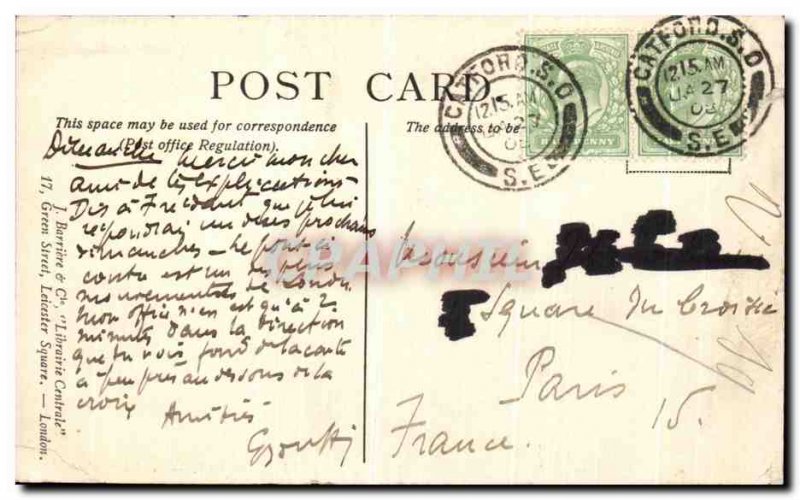 POST CARD
This space may be used for correspondence
(Post office Regulation).
The address to be
CATFORD.S.O
12.15.AM
JA 27
08
S.E.
CATFORD.S.O
12.15.AM
JA 27
08
S.E.
HALFPENNY
Dimanche merci mon cher
ami de tes explications
Dis à que je lui
répondrai un des prochains
dimanches – le pont ci
contre est un des plus
mouvementés de Londres
mon office n'en est qu'à 2
minutes dans la direction
que tu vois fond de la carte
à peu près au dessous de la
croix Amitiés
Monsieur
Square du Croisic
Paris
15.
France.
J. Barrière & Cie, "Librairie Centrale"
17, Green Street, Leicester Square. — London.
CPAPHIL